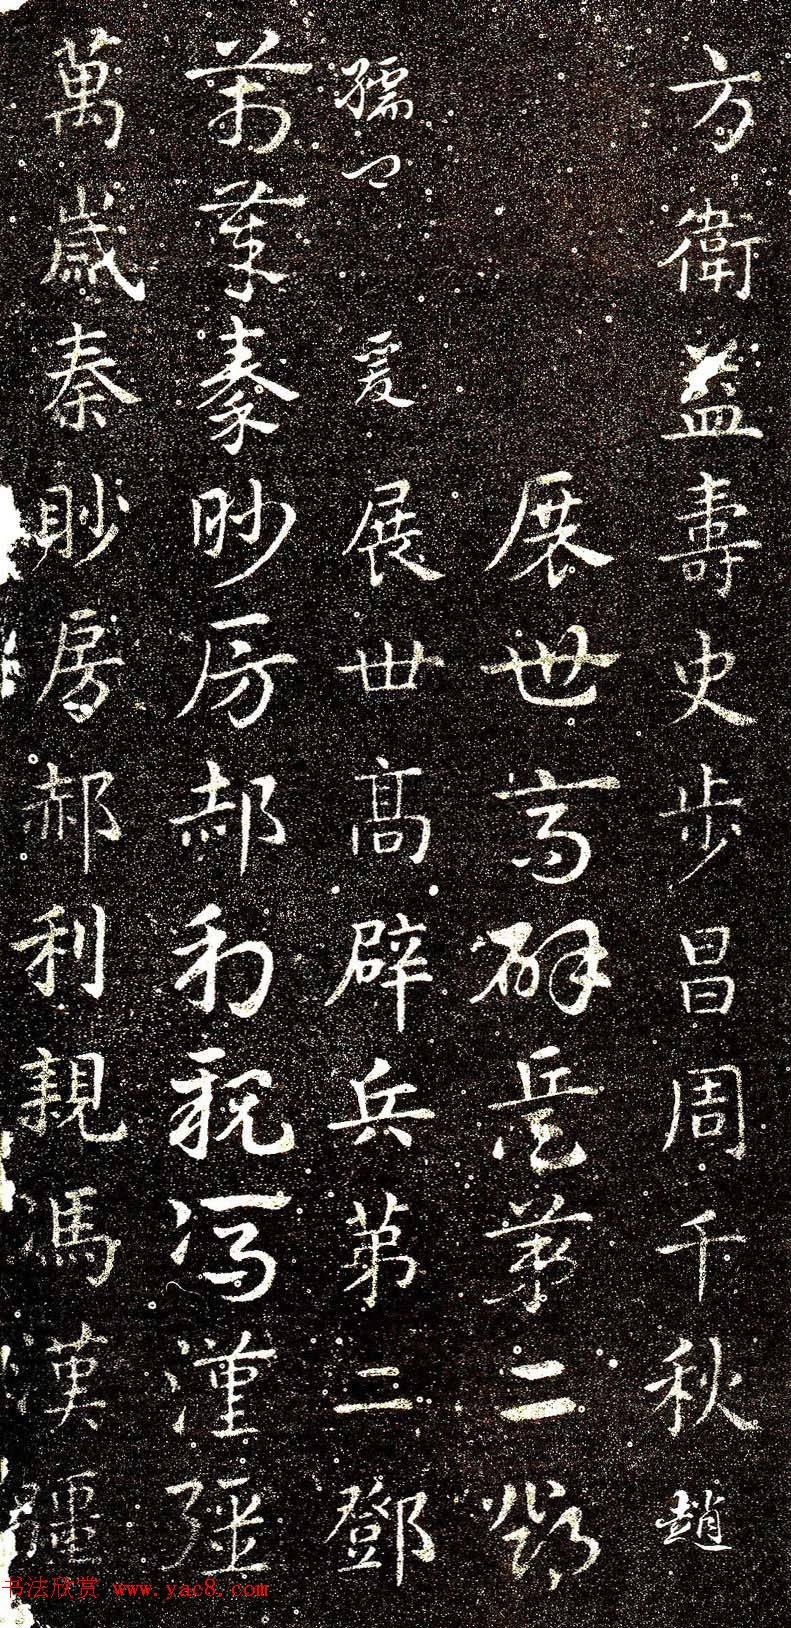 方衛益壽史步昌周千秋趙
展世高辟兵第二鄧
孺卿爰展世高辟兵第二鄧
萬歲秦眇房郝利親馮漢彊
萬歲秦眇房郝利親馮漢彊
书法欣赏 www.yac8.com